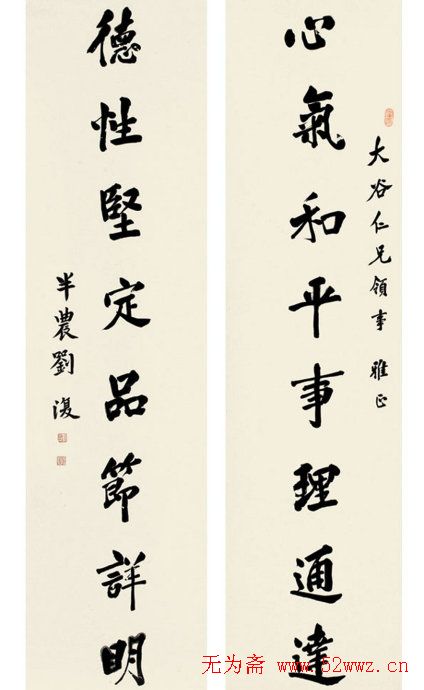 大谷仁兄領事 雅正
心氣和平事理通達
德性堅定品節詳明
半農劉復
无为斋 www.52wwz.cn